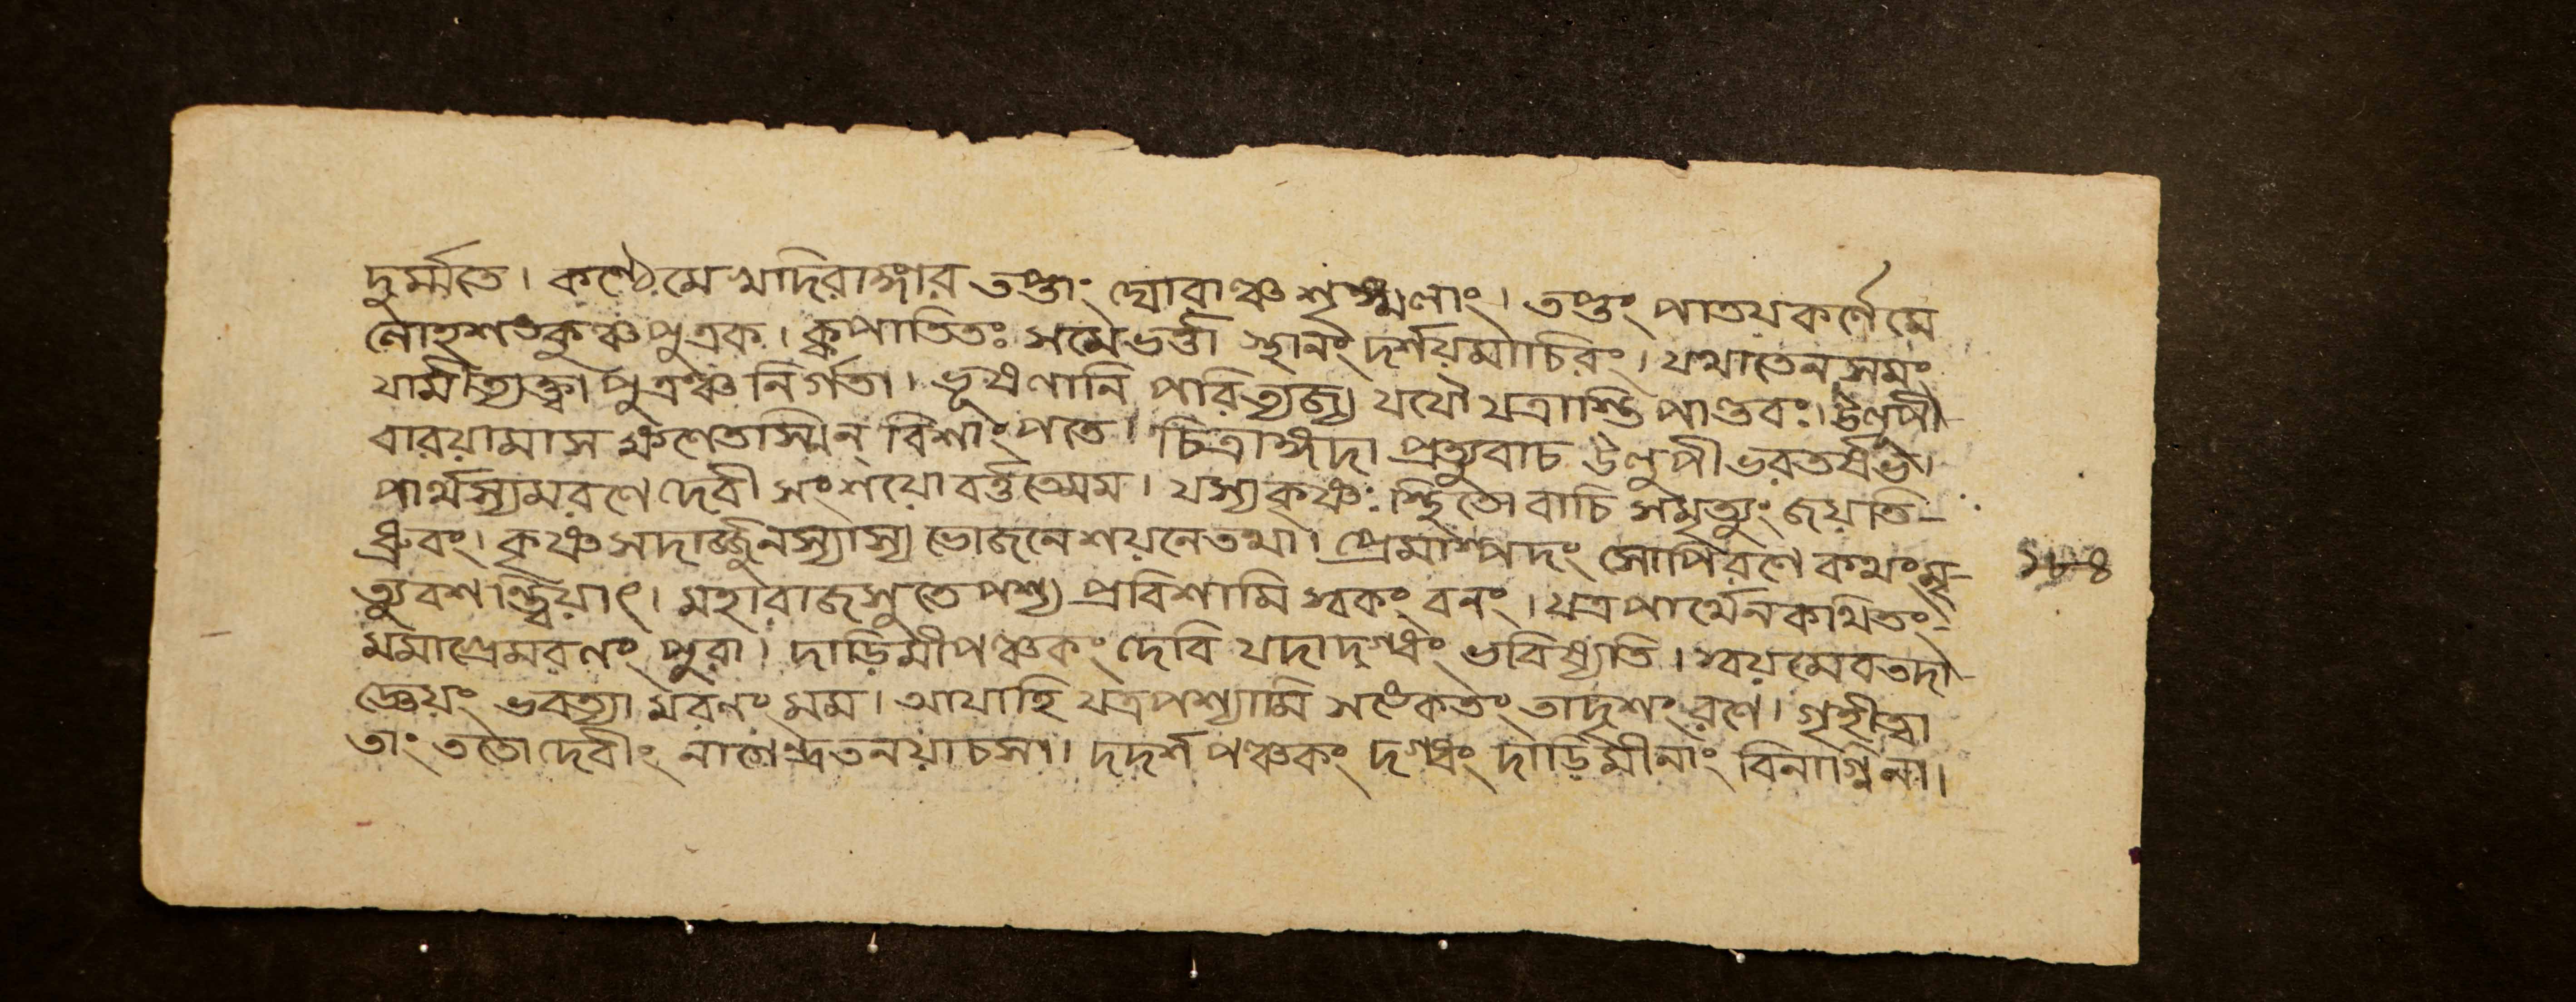 দুর্ম্মতে। কণ্ঠেমে খাদিরাঙ্গার তপ্তাং ঘোরাঞ্চ শৃঙ্খলাং। তপ্তং পাতয কর্ণেমে
লোহশঙ্কুঞ্চ পুত্রক। ক্বপাতিতঃ সমেভর্ত্তা স্থানং দর্শয়মাচিরং। যথাতেন সমং
যামীত্যুক্ত্বা পুত্রঞ্চ নির্গতা। ভূষণানি পরিত্যজ্য যযৌ যত্রাস্তি পাণ্ডবঃ। উলূপী
বারয়ামাস ক্ষণেতাস্মিন্ বিশাং পতে। চিত্রাঙ্গদা প্রত্যুবাচ উলূপী ভরতর্ষভ।
পার্থস্যমরণে দেবী সংশয়ো বর্ত্ততেমম। যস্যকৃষ্ণঃ স্থিতো বাচি সমৃত্যুং জয়তি
ধ্রুবং। কৃষ্ণ সদার্জ্জুনস্যাস্য ভোজনে শয়নেতথা। প্রেমাস্পদং সোপিরণে কথং মৃ
ত্যুবশ ন্ত্বিয়াৎ। মহারাজসুতে পশ্য প্রবিশামি স্বকং বনং। যত্রপার্থেন কথিতং
মমাগ্রেমরণং পুরা। দাড়িমীপঞ্চকং দেবি যদাদগ্ধং ভবিষ্যতি। স্বয়মেবতদা
জ্ঞেয়ং ভবত্যা মরণং মম। আযাহি যত্রপশ্যামি সঙ্কেতং তাদৃশং রণে। গৃহীত্বা
তাং ততোদেবীং নাগেন্দ্রতনয়াচসা। দদর্শ পঞ্চকং দগ্ধং দাড়িমীনাং বিনাগ্নিনা।
১৮৪